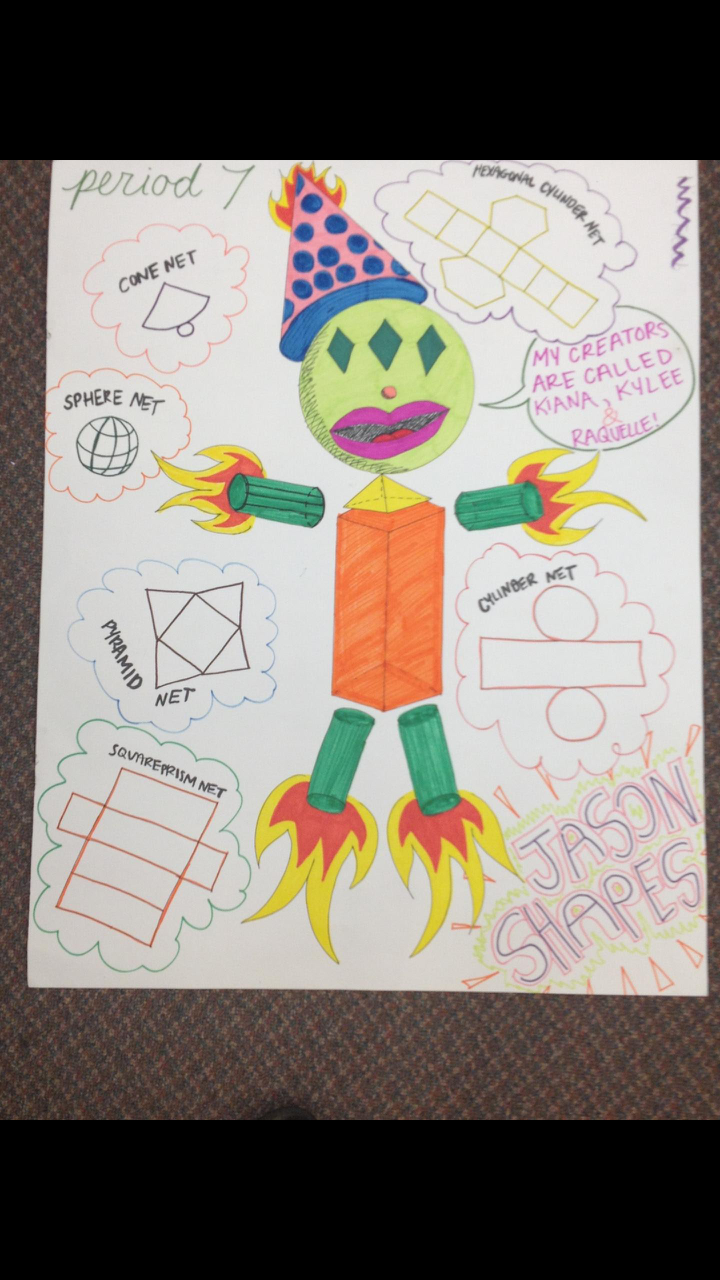 period 7
HEXAGONAL CYLINDER NET
CONE NET
MY CREATORS
ARE CALLED
KIANA, KYLEE
&
RAQUELLE!
SPHERE NET
CYLINDER NET
PYRAMID
NET
SQUAREPRISM NET
JASON
SHAPES